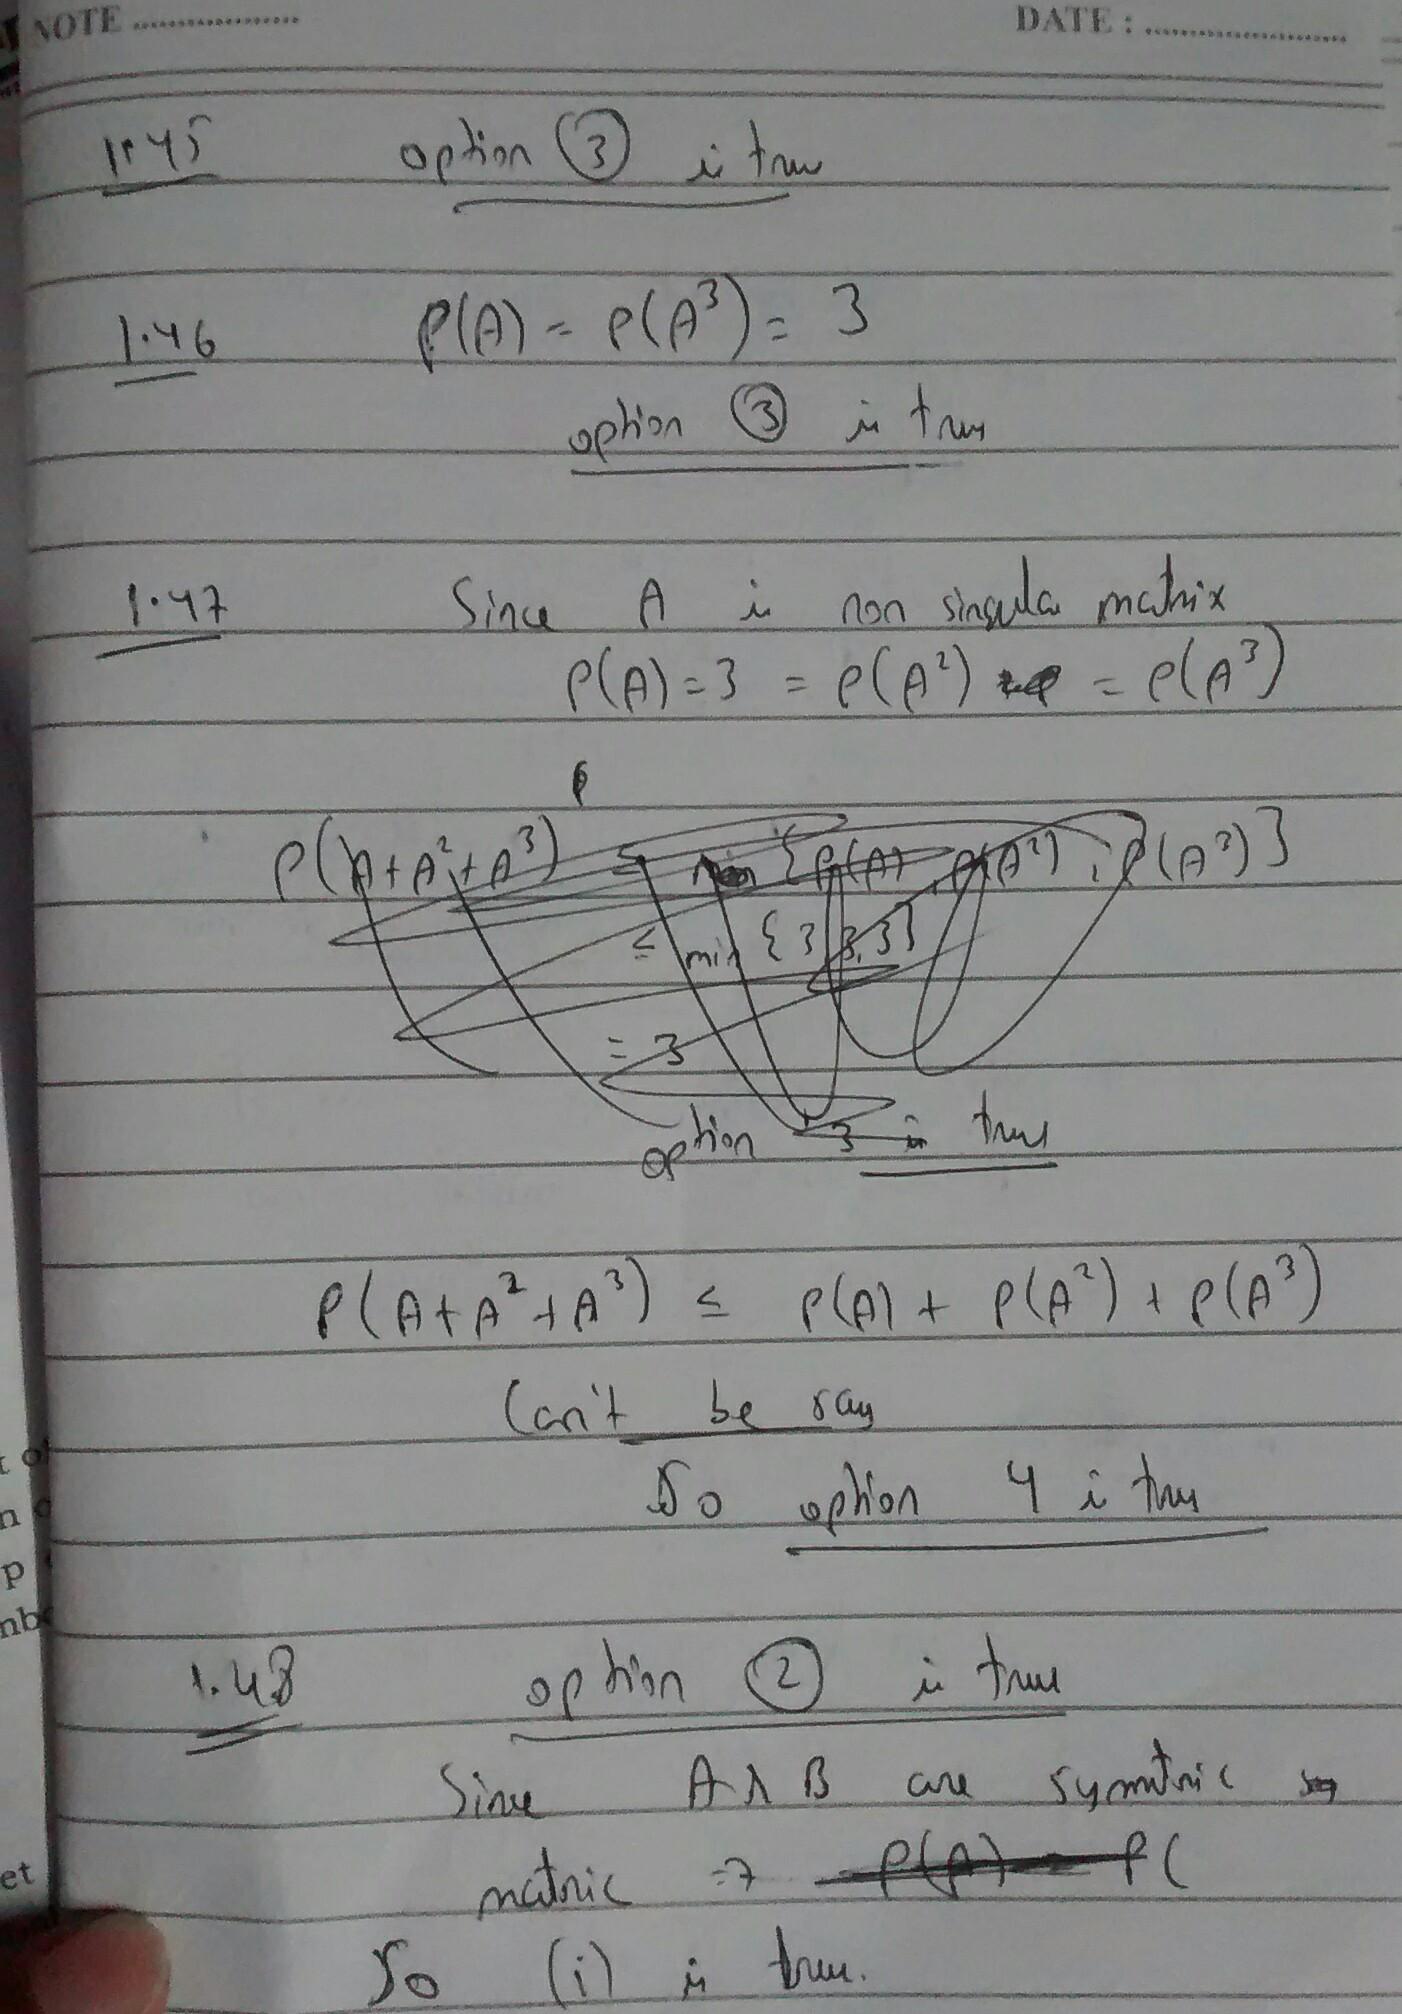 NOTE ....................
DATE : ........................
1.45 option ③ is true
1.46 ρ(A) = ρ(A³) = 3
option ③ is true
1.47 Since A is non singular matrix
ρ(A) = 3 = ρ(A²) = ρ(A³)
ρ(A+A²+A³) ≤ min {ρ(A), ρ(A²), ρ(A³)}
≤ min {3,3,3}
= 3
option 3 is true
ρ(A+A²+A³) ≤ ρ(A) + ρ(A²) + ρ(A³)
Can't be say
So option 4 is true
1.48 option ② is true
Since A & B are symmtric
matric ⇒ ρ(A) = ρ(
So (i) is true.
et